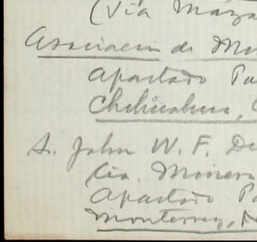 (Via Maza
Asociacion de Mi
Apartado Po
Chihuahua, C
S. John W. F. De
Cia. Minera
Apartado Po
Monterrey, N